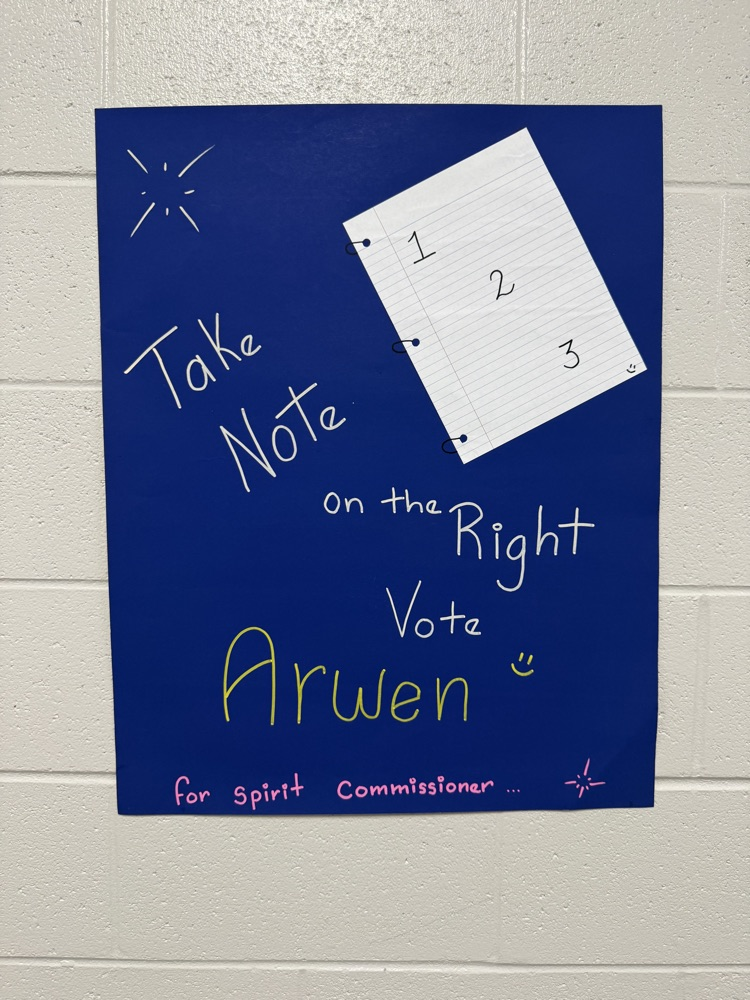 1
2
3
Take
Note
on the Right
Vote
Arwen
for spirit Commissioner ...